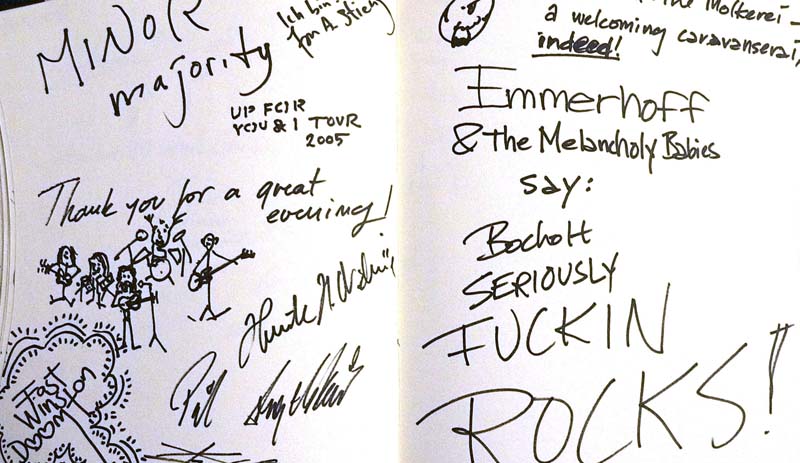 MINOR
majority
Ich bin
UP FOR
YOU & I TOUR
2005
Thank you for a great
evening!
Fast
Winston
Doom
the Molkerei -
a welcoming caravanserai,
indeed!
Immerhoff
& the Melancholy Babies
say:
Bocholt
SERIOUSLY
FUCKIN
ROCKS!